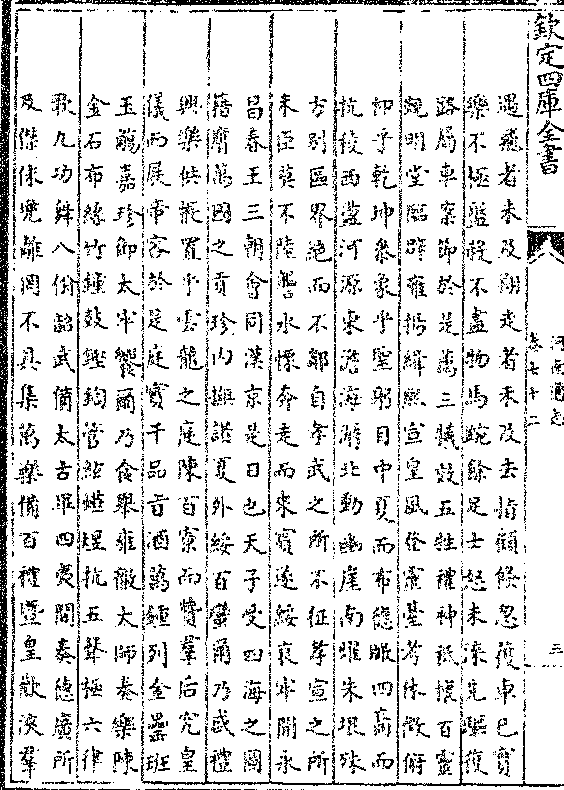 欽定四庫全書
河南通志
卷七十二
三
遇飛者未及翔走者未及去指顧倐忽獲車已實
樂不極盤殺不盡物馬踠餘足士怒未渫先驅復
路屬車案節於是薦三犧效五牲禮神祇懷百靈
覲明堂臨辟雍揚緝熙宣皇風登靈臺考休徵俯
仰乎乾坤參象乎聖躬目中夏而布德瞰四裔而
抗稜西盪河源東澹海漘北動幽崖南燿朱垠殊
方别區界絶而不鄰自孝武之所不征孝宣之所
未臣莫不陸讋水慄奔走而來賓遂綏哀牢開永
昌春王三朝會同漢京是日也天子受四海之圖
籍膺萬國之貢珍内撫諸夏外綏百蠻爾乃盛禮
興樂供帳置乎雲龍之庭陳百寮而贊羣后究皇
儀而展帝容於是庭實千品旨酒萬鍾列金罍班
玉觴嘉珍御太牢饗爾乃食舉雍徹大師奏樂陳
金石布絲竹鐘鼓鏗鍧管絃燁煜抗五聲極六律
歌九功舞八佾韶武備太古畢四夷間奏德廣所
及傑休兜離罔不具集萬樂備百禮暨皇歡浹羣